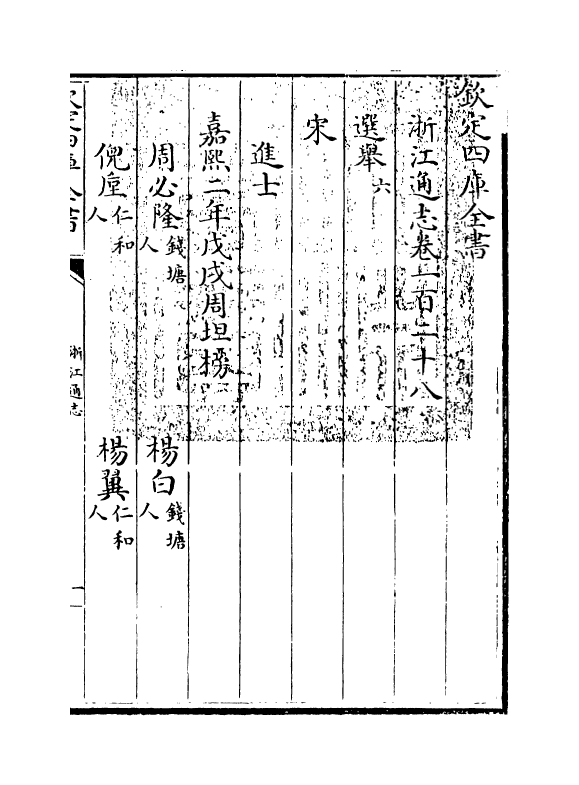 欽定四庫全書
浙江通志卷一百二十八
選舉六
宋
進士
嘉熙二年戊戌周坦榜
周必隆錢塘人
楊白錢塘人
倪垕仁和人
楊巽仁和人
欽定四庫全書
浙江通志
一